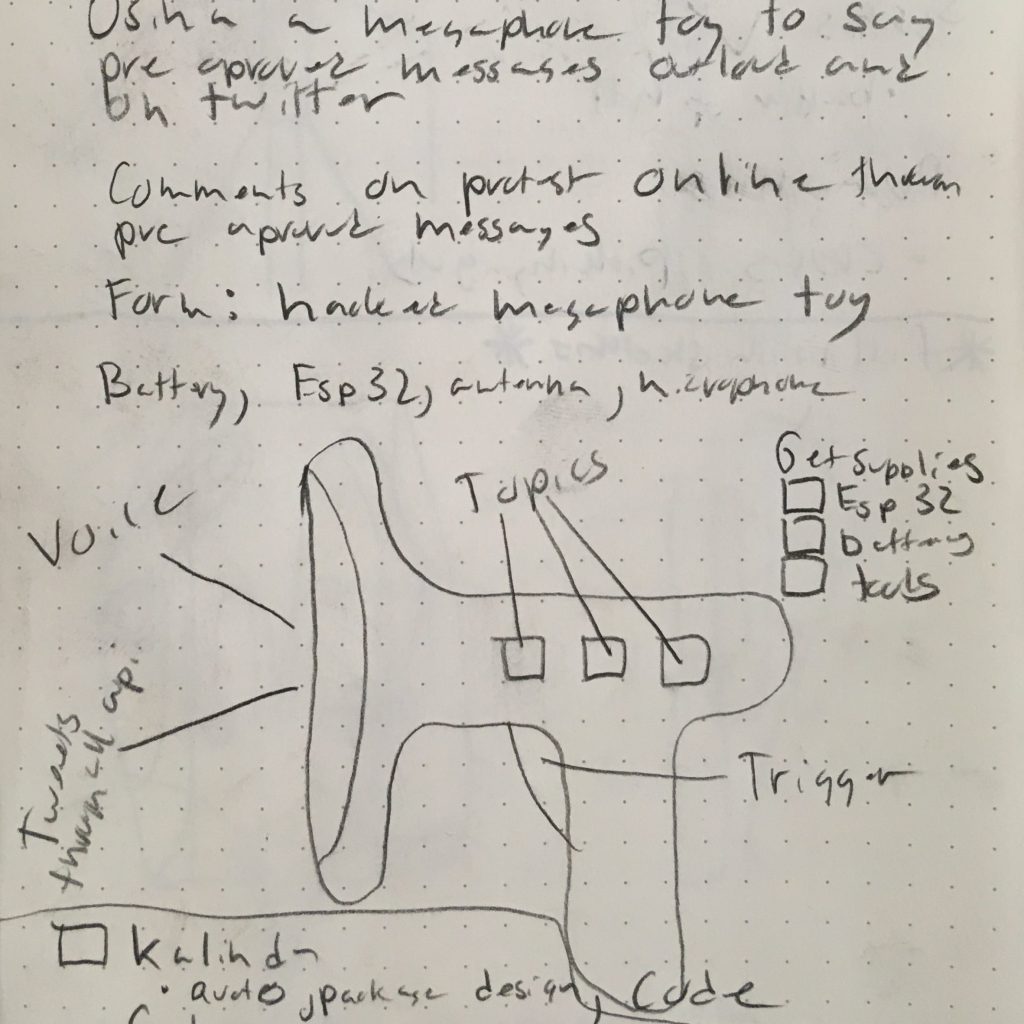 Using a megaphone toy to say
pre aproved messages outloud and
on twitter
Comments on protest online through
pre aproved messages
Form: hacked megaphone toy
Battery, Esp32, antenna, microphone
Get supplies
Esp 32
battery
tools
Topics
Voice
Tweets
through api
Trigger
Kalinda
• audio, package design, code